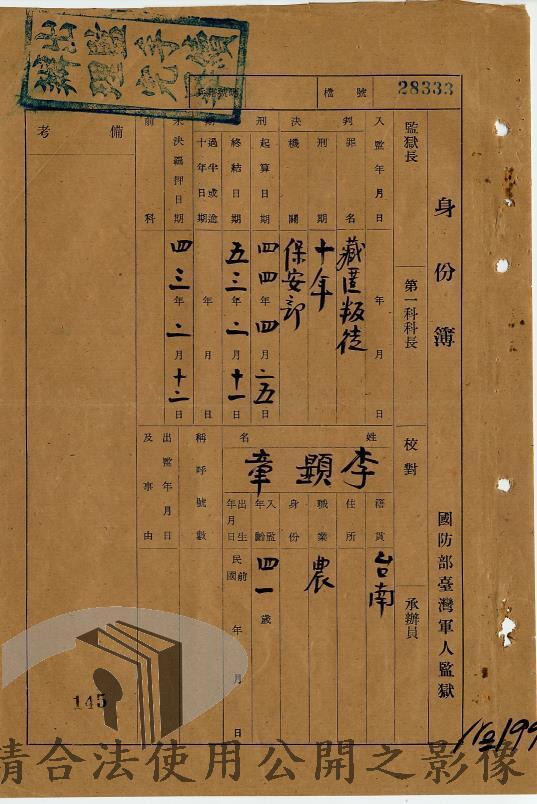 28333
檔號
身份簿
國防部臺灣軍人監獄
監獄長
第一科科長
校對
承辦員
入監年月日
年 月 日
判罪名
藏匿叛徒
刑期
十年
決機關
保安部
刑起算日期
四四年四月二五日
終結日期
五三年二月十一日
過半或逾十年日期
年 月 日
未決羈押日期
四三年二月十二日
前科
備考
姓名
李顯章
籍貫
台南
住所
職業
農
身份
入監年齡
四一歲
出生年月日
民國前 年 月 日
稱呼號數
出監年月日及事由
145
請合法使用公開之影像